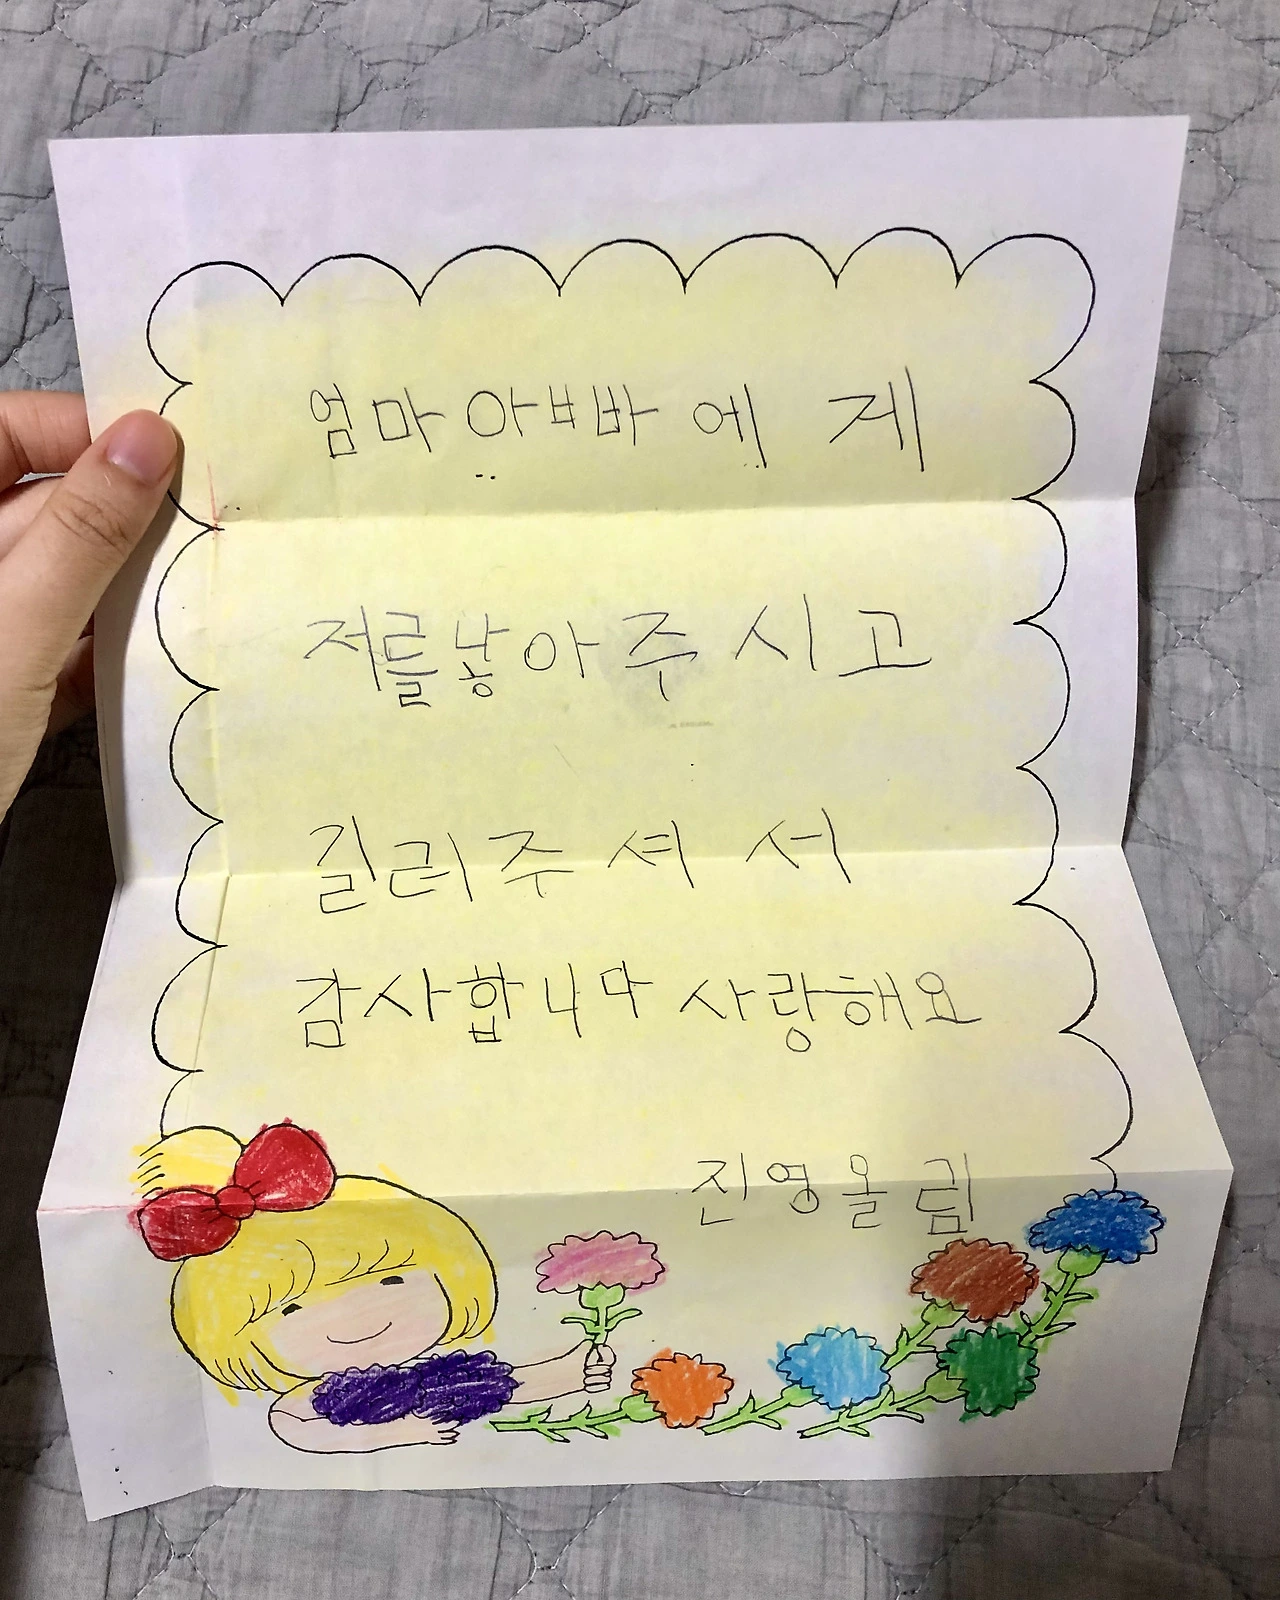 엄마 아빠에게
저를낳아주시고
길러주셔서
감사합니다 사랑해요
진영올림